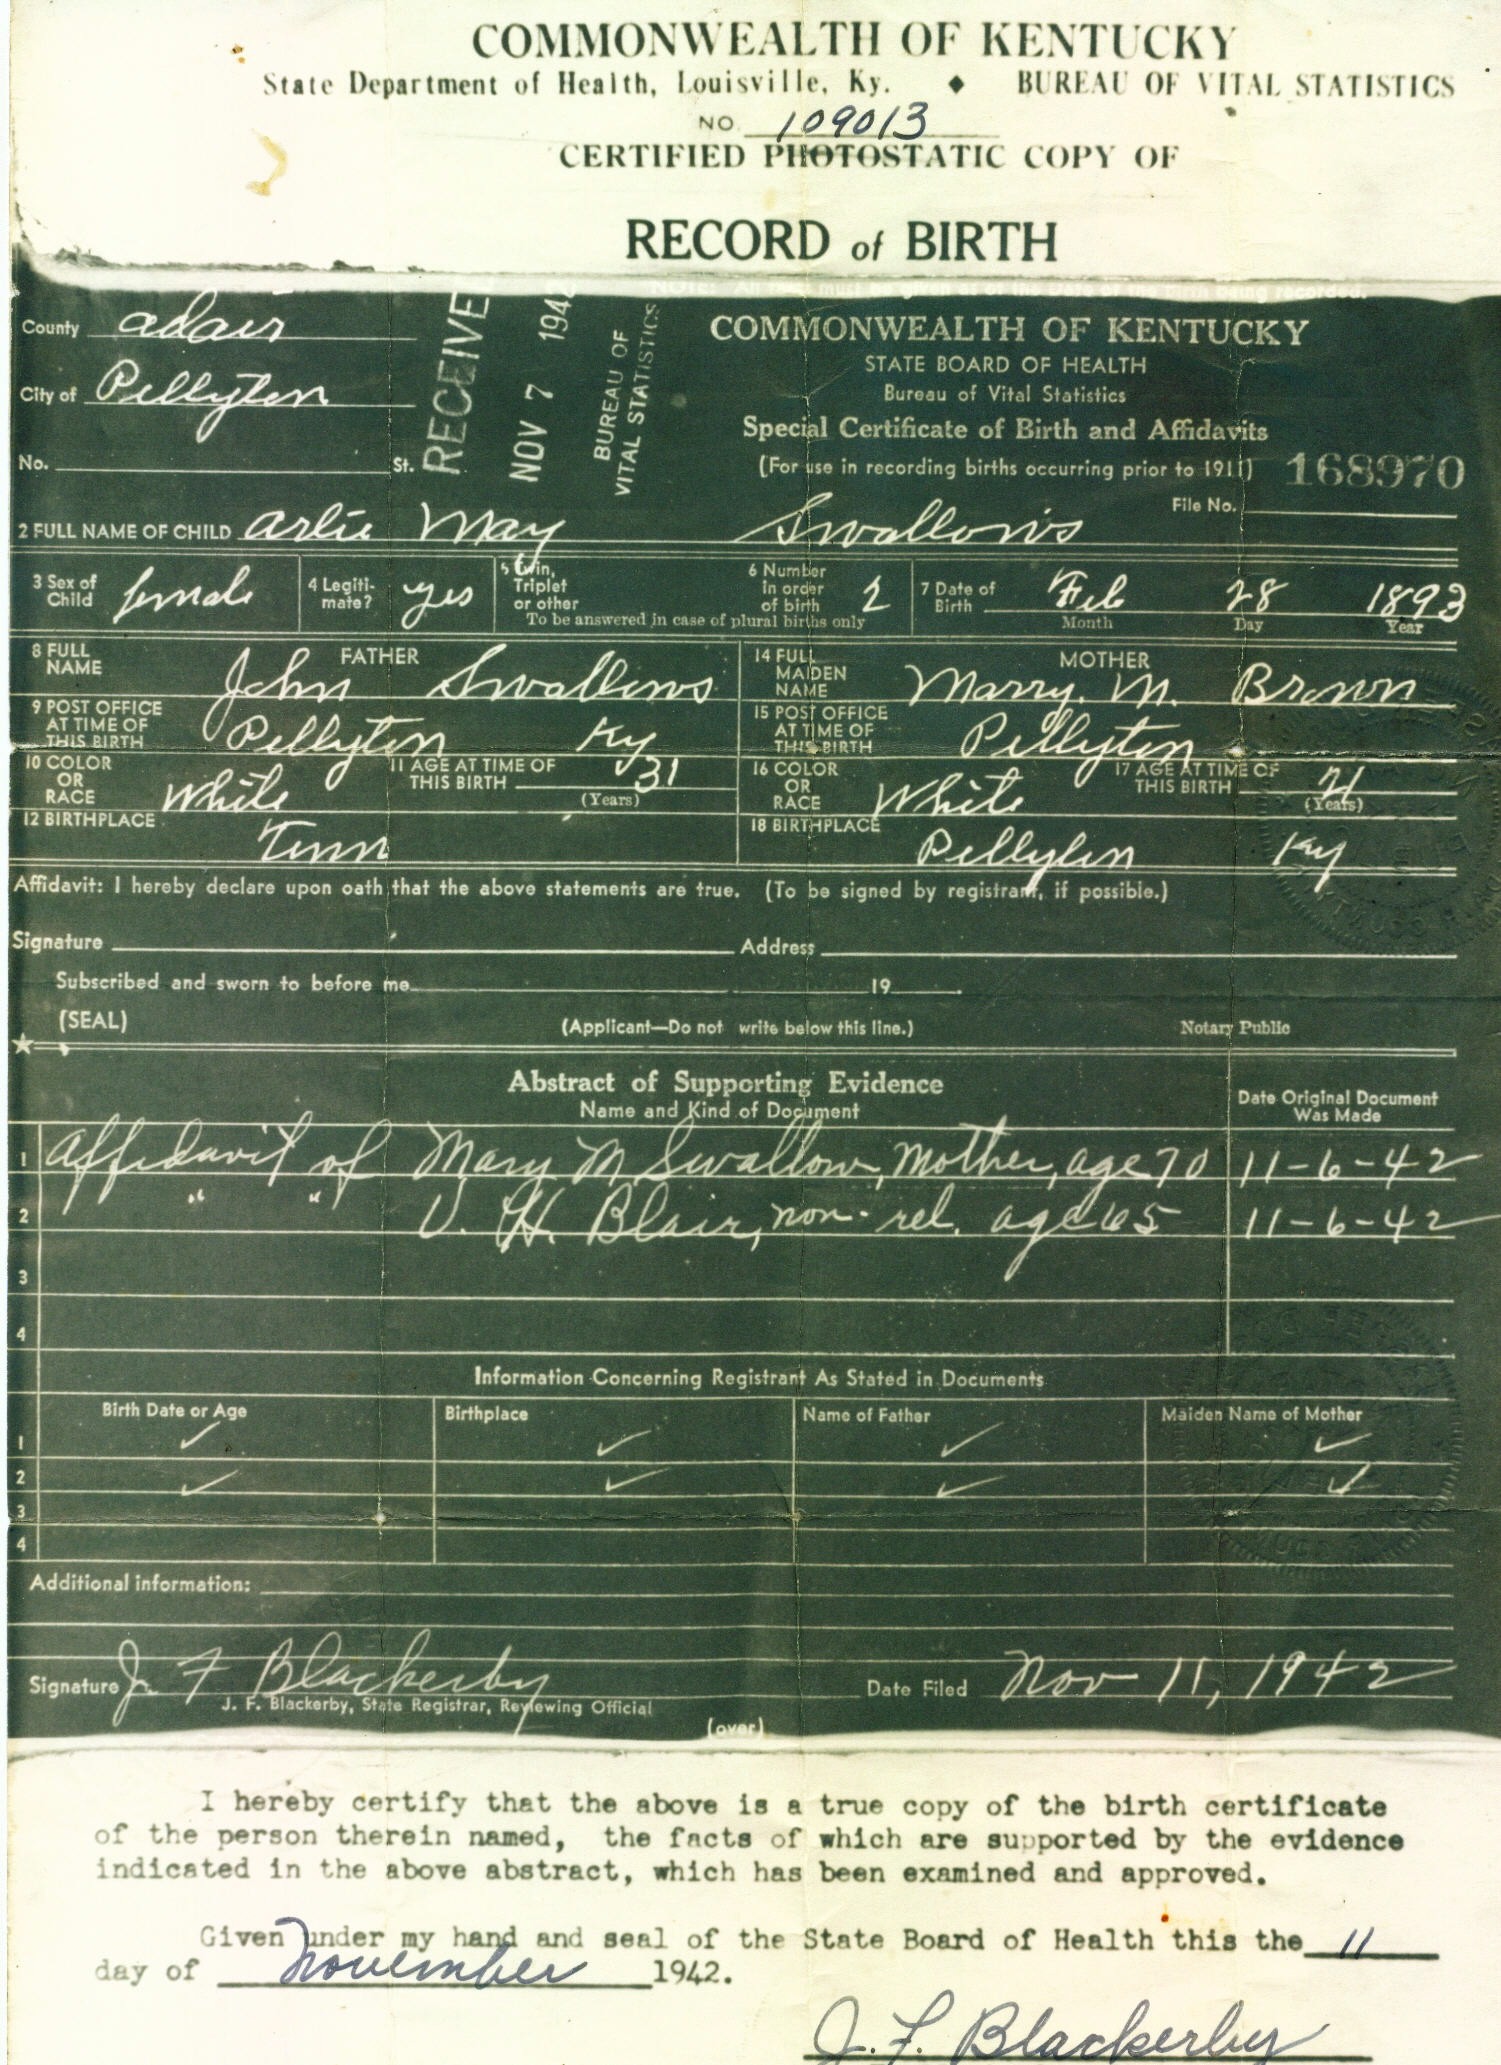 COMMONWEALTH OF KENTUCKY
State Department of Health, Louisville, Ky. ◆ BUREAU OF VITAL STATISTICS
NO. 109013
CERTIFIED PHOTOSTATIC COPY OF
RECORD of BIRTH
County adair
City of Pellyton
No. St.
RECEIVE
NOV 7 1942
BUREAU OF
VITAL STATISTICS
COMMONWEALTH OF KENTUCKY
STATE BOARD OF HEALTH
Bureau of Vital Statistics
Special Certificate of Birth and Affidavits
(For use in recording births occurring prior to 1911) 168970
File No.
2 FULL NAME OF CHILD Arlie May Swallows
3 Sex of Child female
4 Legiti-mate? yes
5 Twin, Triplet or other
6 Number in order of birth 2
To be answered in case of plural births only
7 Date of Birth Feb 28 1893
Month Day Year
FATHER
8 FULL NAME John Swallows
9 POST OFFICE AT TIME OF THIS BIRTH Pellyton Ky
10 COLOR OR RACE White
11 AGE AT TIME OF THIS BIRTH 31
(Years)
12 BIRTHPLACE Tenn
MOTHER
14 FULL MAIDEN NAME Marry. M. Brown
15 POST OFFICE AT TIME OF THIS BIRTH Pellyton
16 COLOR OR RACE White
17 AGE AT TIME OF THIS BIRTH 21
(Years)
18 BIRTHPLACE Pellyton Ky
Affidavit: I hereby declare upon oath that the above statements are true. (To be signed by registrant, if possible.)
Signature Address
Subscribed and sworn to before me 19
(SEAL) (Applicant—Do not write below this line.) Notary Public
Abstract of Supporting Evidence
Name and Kind of Document
Date Original Document Was Made
1 Affidavit of Mary M Swallow, mother, age 70 11-6-42
2 " " V. H. Blair, non-rel. age 65 11-6-42
3
4
Information Concerning Registrant As Stated in Documents
Birth Date or Age Birthplace Name of Father Maiden Name of Mother
1 ✓ ✓ ✓ ✓
2 ✓ ✓ ✓ ✓
3
4
Additional information:
Signature J. F Blackerby Date Filed Nov 11, 1942
J. F. Blackerby, State Registrar, Reviewing Official
(over)
I hereby certify that the above is a true copy of the birth certificate
of the person therein named, the facts of which are supported by the evidence
indicated in the above abstract, which has been examined and approved.
Given under my hand and seal of the State Board of Health this the 11
day of November 1942.
J. F. Blackerby